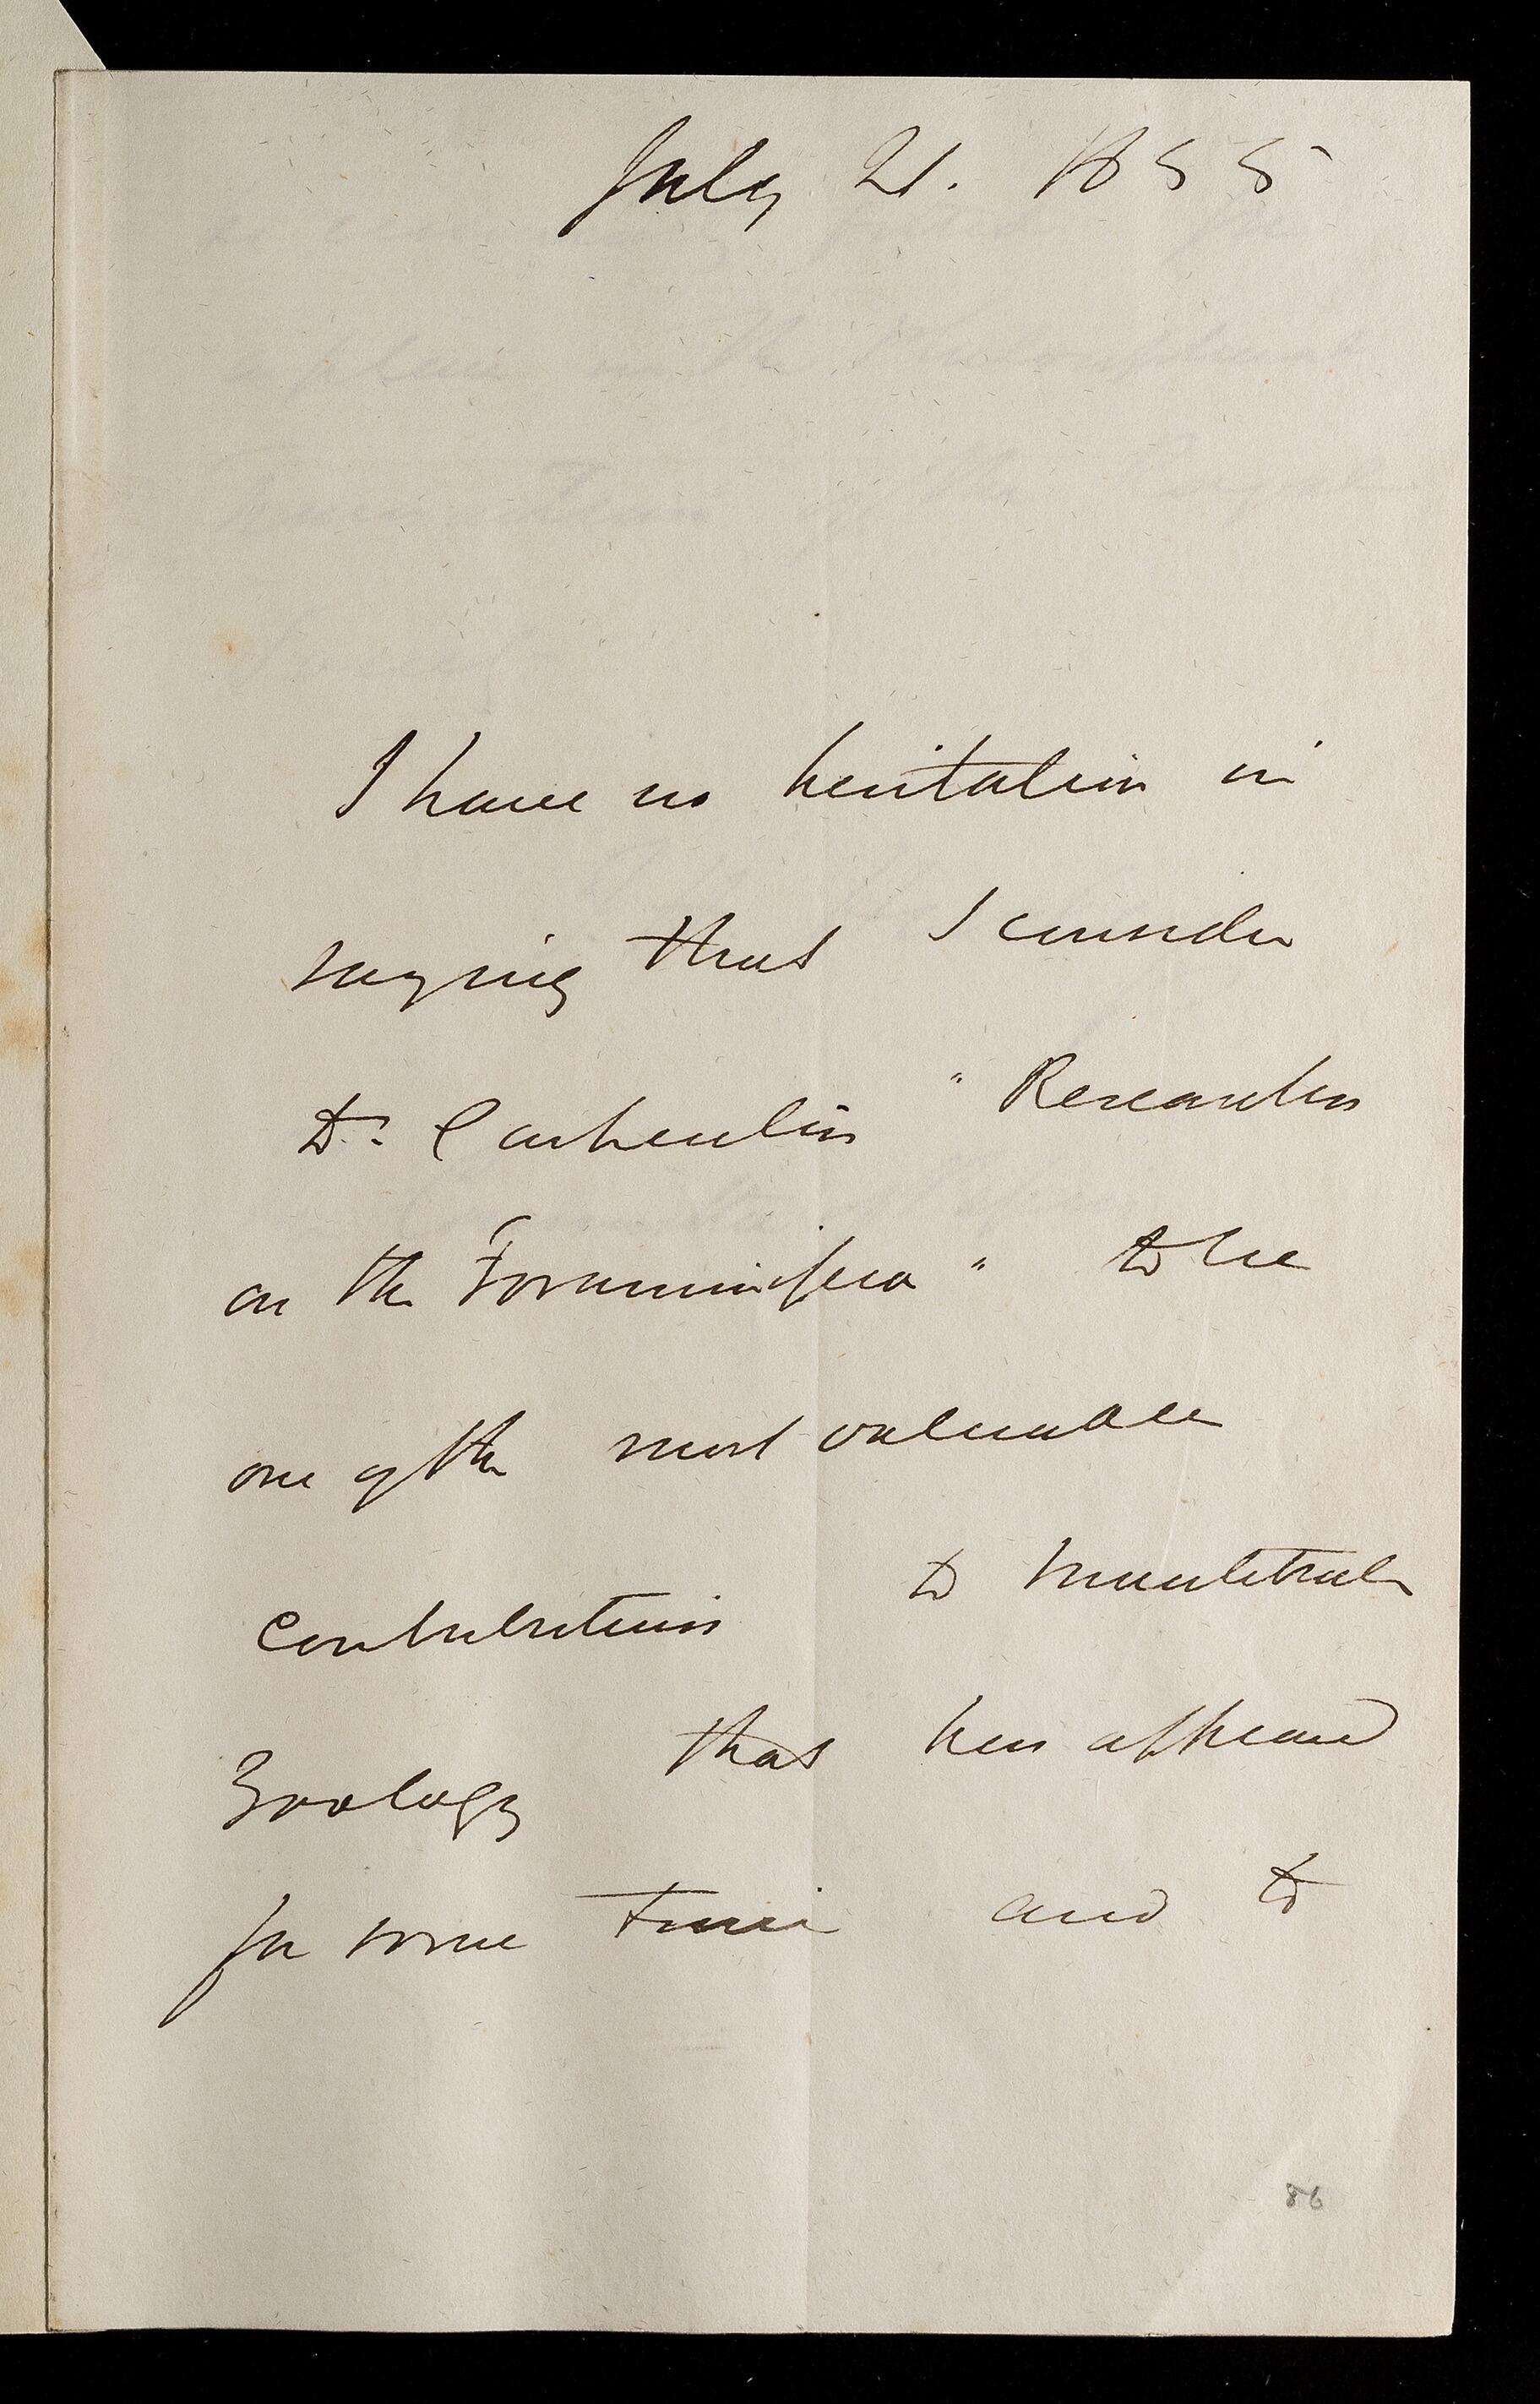 July 21. 1855
I have no hesitation in
saying that I consider
Dr. Carpenters "Researches
on the Foraminifera" to be
one of the most valuable
contributions to Invertebrate
Zoology that has appeared
for some time and to
86